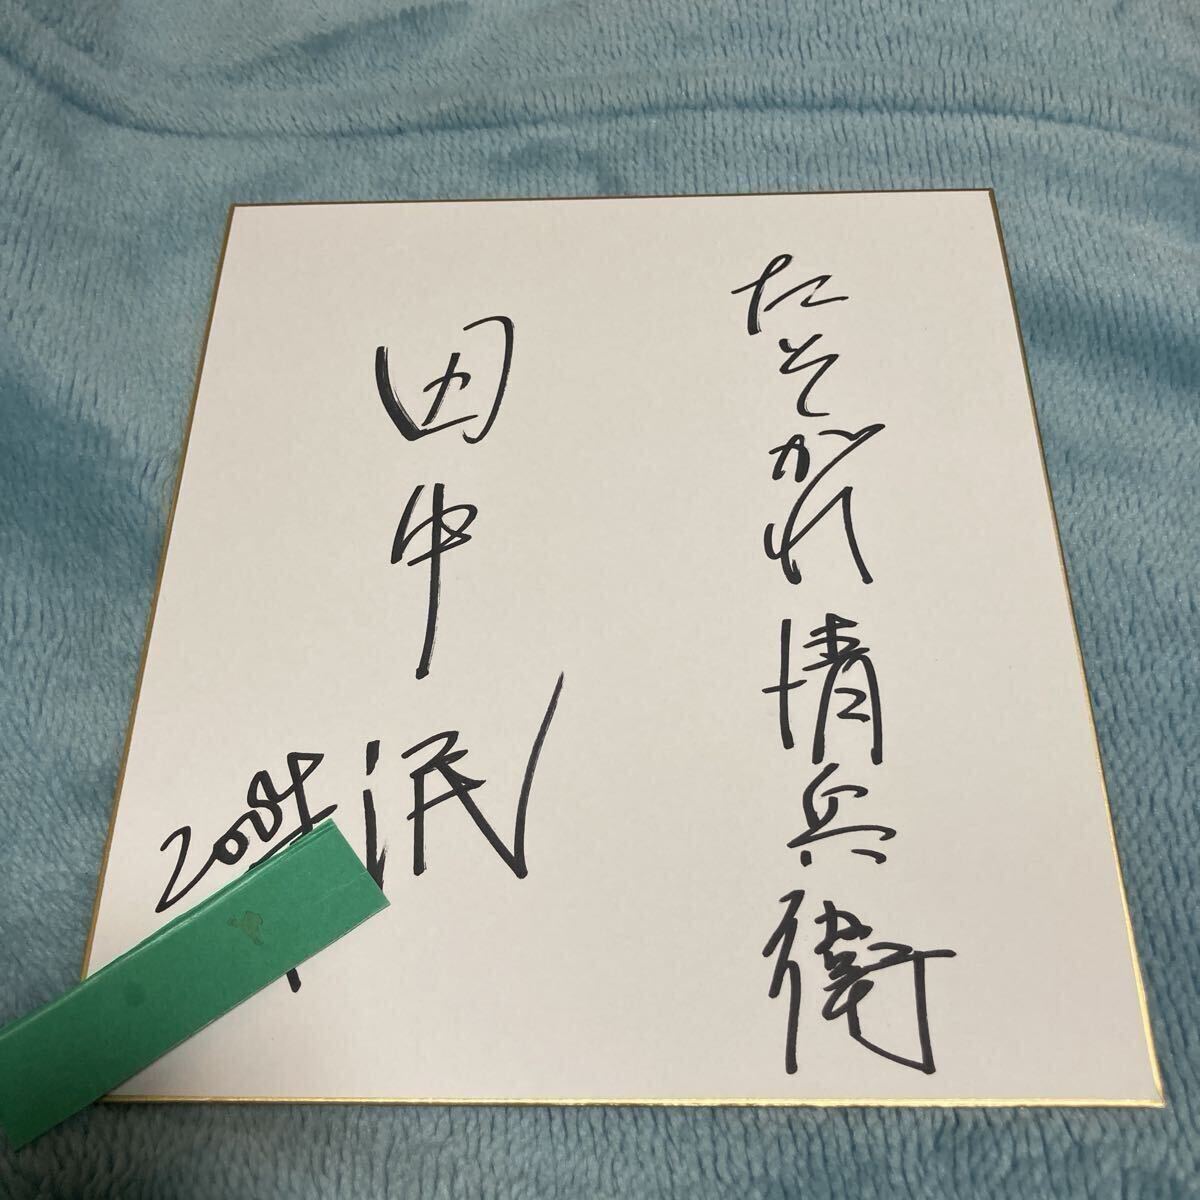 たそがれ清兵衛
田中泯
2004